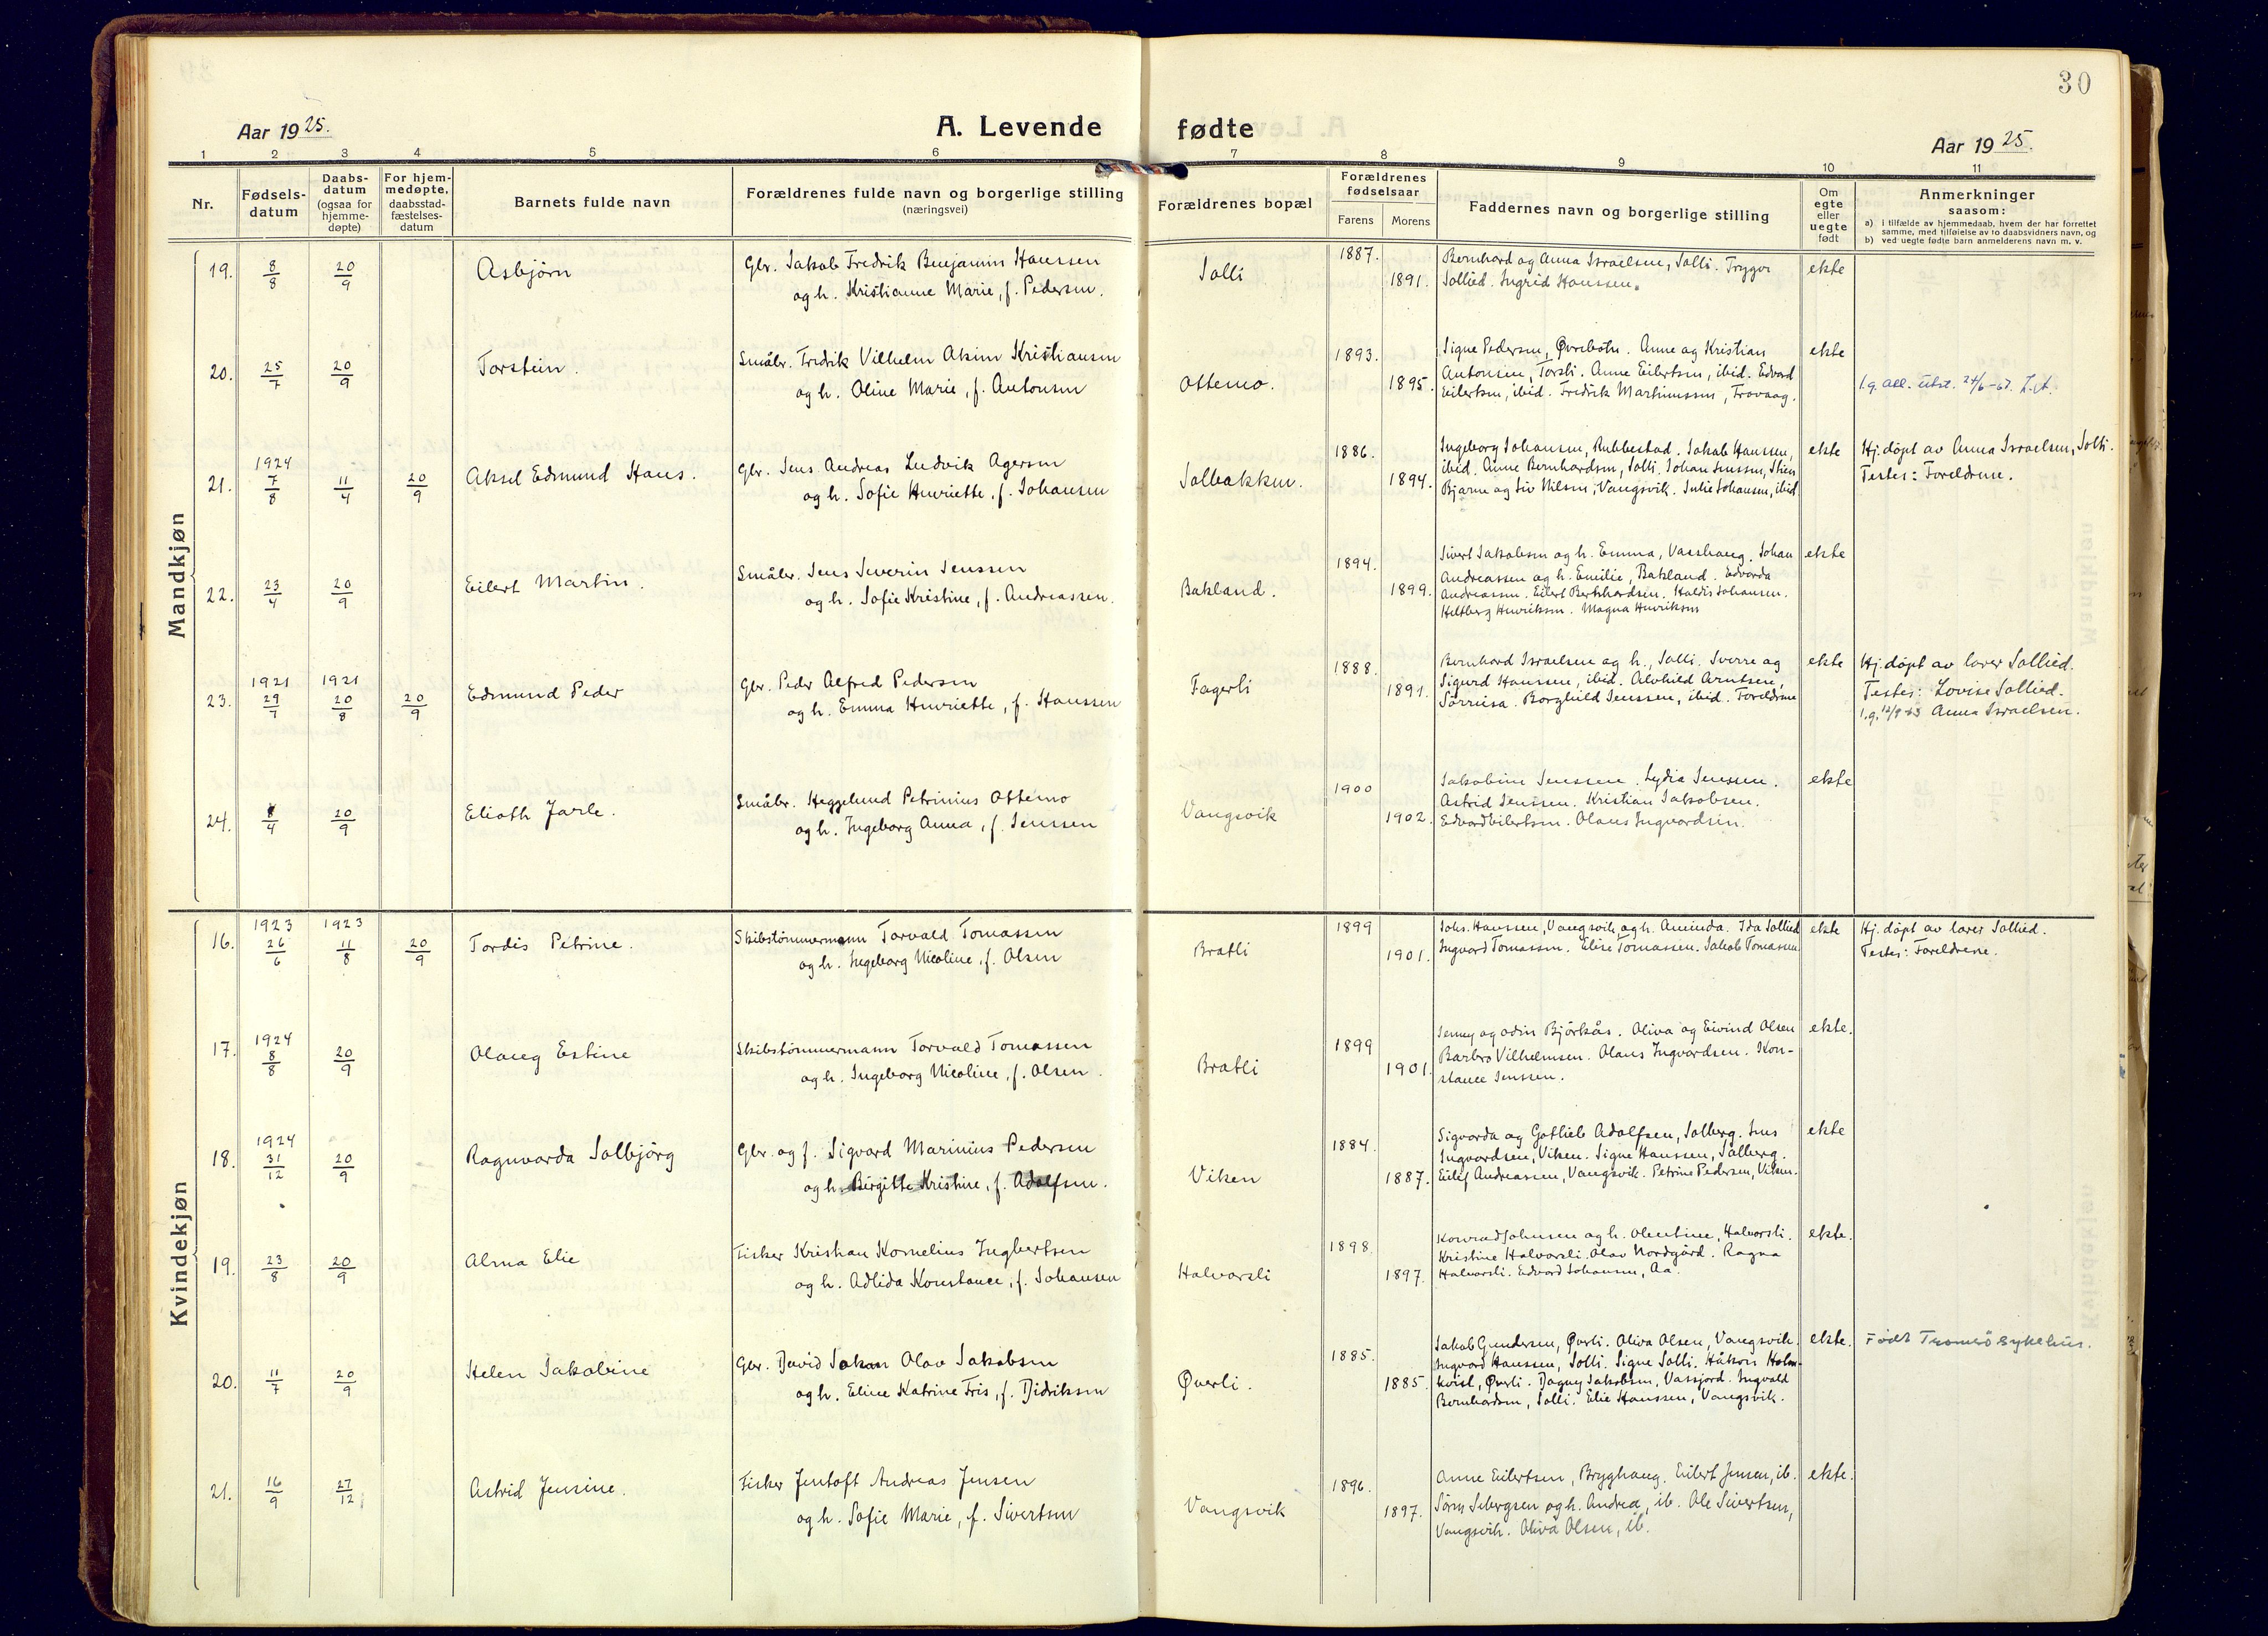 30
Aar 1925.
A. Levende fødte
Aar 1925.
1 2 3 4 5 6 7 8 9 10 11
Nr.
Fødsels-
datum
Daabs-
datum
(ogsaa for
hjemme-
døpte)
For hjem-
medøpte,
daabsstad-
fæstelses-
datum
Barnets fulde navn
Forældrenes fulde navn og borgerlige stilling
(næringsvei)
Forældrenes bopæl
Forældrenes
fødselsaar
Farens Morens
Faddernes navn og borgerlige stilling
Om
egte
eller
uegte
født
Anmerkninger
saasom:
a) i tilfælde av hjemmedaab, hvem der har forrettet
samme, med tilføielse av to daabsvidners navn, og
b) ved uegte fødte barn anmelderens navn m. v.
Mandkjøn
19. 8/8 20/9 Asbjørn
Gbr. Jakob Fredrik Benjamin Hanssen
og h. Kristianne Marie, f. Pedersen.
Solli
1887.
1891.
Bernhard og Anna Israelsen, Solli. Trygve
Sollied. Ingrid Hanssen.
ekte
20. 25/7 20/9 Torstein.
Småbr. Fredrik Vilhelm Akim Kristiansen
og h. Oline Marie, f. Antonsen
Ottemo.
1893.
1895.
Signe Pedersen, Øvrebotn. Anne og Kristian
Antonsen, Torsli. Anne Eilertsen, ibid. Edvard
Eilertsen, ibid. Fredrik Martinussen, Trovaag.
ekte
l.g. all. utst. 24/6-67.
21. 1924 7/8 11/4 20/9 Aksel Edmund Hans.
Gbr. Jens Andreas Ludvik Agersen
og h. Sofie Henriette, f. Johansen
Solbakken.
1886.
1894.
Ingeborg Johansen, Rubbestad. Jakob Hanssen,
ibid. Anne Bernhardsen, Solli. Johan Jenssen, Stien
Bjarne og Siv Nilsen, Vangsvik. Julie Johansen, ibid.
ekte
Hj. döpt av Anna Israelsen, Solli.
Testes: Foreldrene.
22. 23/4 20/9 Eilert Martin.
Småbr. Jens Severin Jenssen
og h. Sofie Kristine, f. Andreassen.
Bakland.
1894.
1899.
Sivert Jakobsen og h. Emma, Vasshaug. Johan
Andreassen og h. Emilie, Bakland. Edvarda
Andreassen. Eilert Bernhardsen. Haldis Johansen.
Heltberg Henriksen. Magna Henriksen
ekte
23. 1921 29/7 1921 20/8 20/9 Edmund Peder
Gbr. Peder Alfred Pedersen
og h. Emma Henriette, f. Hanssen
Fagerli
1888.
1891.
Bernhard Israelsen og h., Solli. Sverre og
Sigurd Hanssen, ibid. Alvhild Arntsen,
Sörreisa. Borghild Jenssen, ibid. Foreldrene
ekte
Hj. döpt av lærer Sollied.
Testes: Lovise Sollied.
l.g. 12/9-63 Anna Israelsen.
24. 8/4 20/9 Elioth Jarle.
Småbr. Heggelund Petrinius Ottemo
og h. Ingeborg Anna, f. Jenssen
Vangsvik
1900
1902.
Jakobine Jenssen. Lydia Jenssen.
Astrid Jenssen. Kristian Jakobsen.
Edvard Eilertsen. Olaus Ingvardsen.
ekte
Kvindekjøn
16. 1923 26/6 1923 11/8 20/9 Tordis Petrine.
Skibstömmermann Torvald Tomassen
og h. Ingeborg Nicoline, f. Olsen
Bratli
1899
1901.
Johs. Hanssen, Vangsvik og h. Aminda. Ida Sollied
Ingvard Tomassen. Elise Tomassen. Jakob Tomassen
ekte
Hj. döpt av lærer Sollied.
Testes: Foreldrene.
17. 1924 8/8 20/9 Olaug Estine
Skibstömmermann Torvald Tomassen
og h. Ingeborg Nicoline, f. Olsen.
Bratli
1899
1901.
Jenny og Odin Björkås. Oliva og Eivind Olsen
Barbro Vilhelmsen. Olaus Ingvardsen. Kon-
stance Jenssen.
ekte.
18. 1924 31/12 20/9 Ragnvarda Solbjörg
Gbr. og f. Sigvard Marinius Pedersen
og h. Birgitte Kristine, f. Adolfsen.
Viken
1884.
1887.
Sigvarda og Gotlieb Adolfsen, Solberg. Jens
Ingvardsen, Viken. Signe Hanssen, Solberg.
Eilif Andreassen, Vangsvik. Petrine Pedersen, Viken.
ekte
19. 23/8 20/9 Alma Elie
Fisker Kristian Kornelius Ingbertsen
og h. Adlida Konstance, f. Johansen
Halvorsli
1898.
1897.
Konrad Johnsen og h. Olentine, Halvorsli.
Kristine Halvorsli. Olav Nordgård. Ragna
Halvorsli. Edvard Johansen, Aa.
ekte.
20. 11/7 20/9 Helen Jakobine
Gbr. David Johan Olav Jakobsen
og h. Eline Katrine Fris, f. Didriksen
Øverli.
1885.
1885.
Jakob Gundersen, Øverli. Oliva Olsen, Vangsvik.
Ingvard Hanssen, Solli. Signe Solli. Håkon Holm-
kvist, Øverli. Dagny Jakobsen, Vassjord. Ingvald
Bernhardsen, Solli. Elie Hanssen, Vangsvik.
ekte.
Födt Tromsö sykehus.
21. 16/9 27/12 Astrid Jensine.
Fisker Jentoft Andreas Jensen
og h. Sofie Marie, f. Sivertsen
Vangsvik
1896.
1897.
Anne Eilertsen, Brygghaug. Eilert Jensen, ib.
Sören Sebergsen og h. Andrea, ib. Ole Sivertsen,
Vangsvik. Oliva Olsen, ib.
ekte.